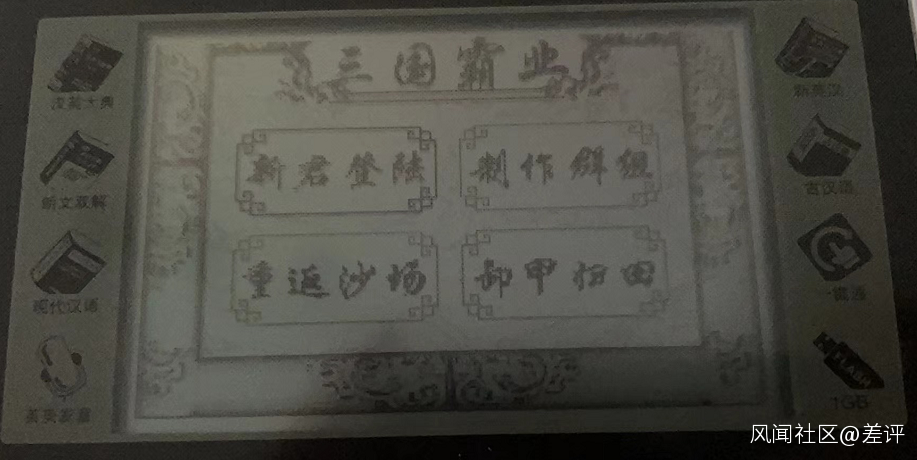 三国霸业
新君登陆
制作群组
重返沙场
卸甲归田
汉英大典
朗文双解
现代汉语
新英汉
古汉语
FLASH
1GB
风闻社区@差评